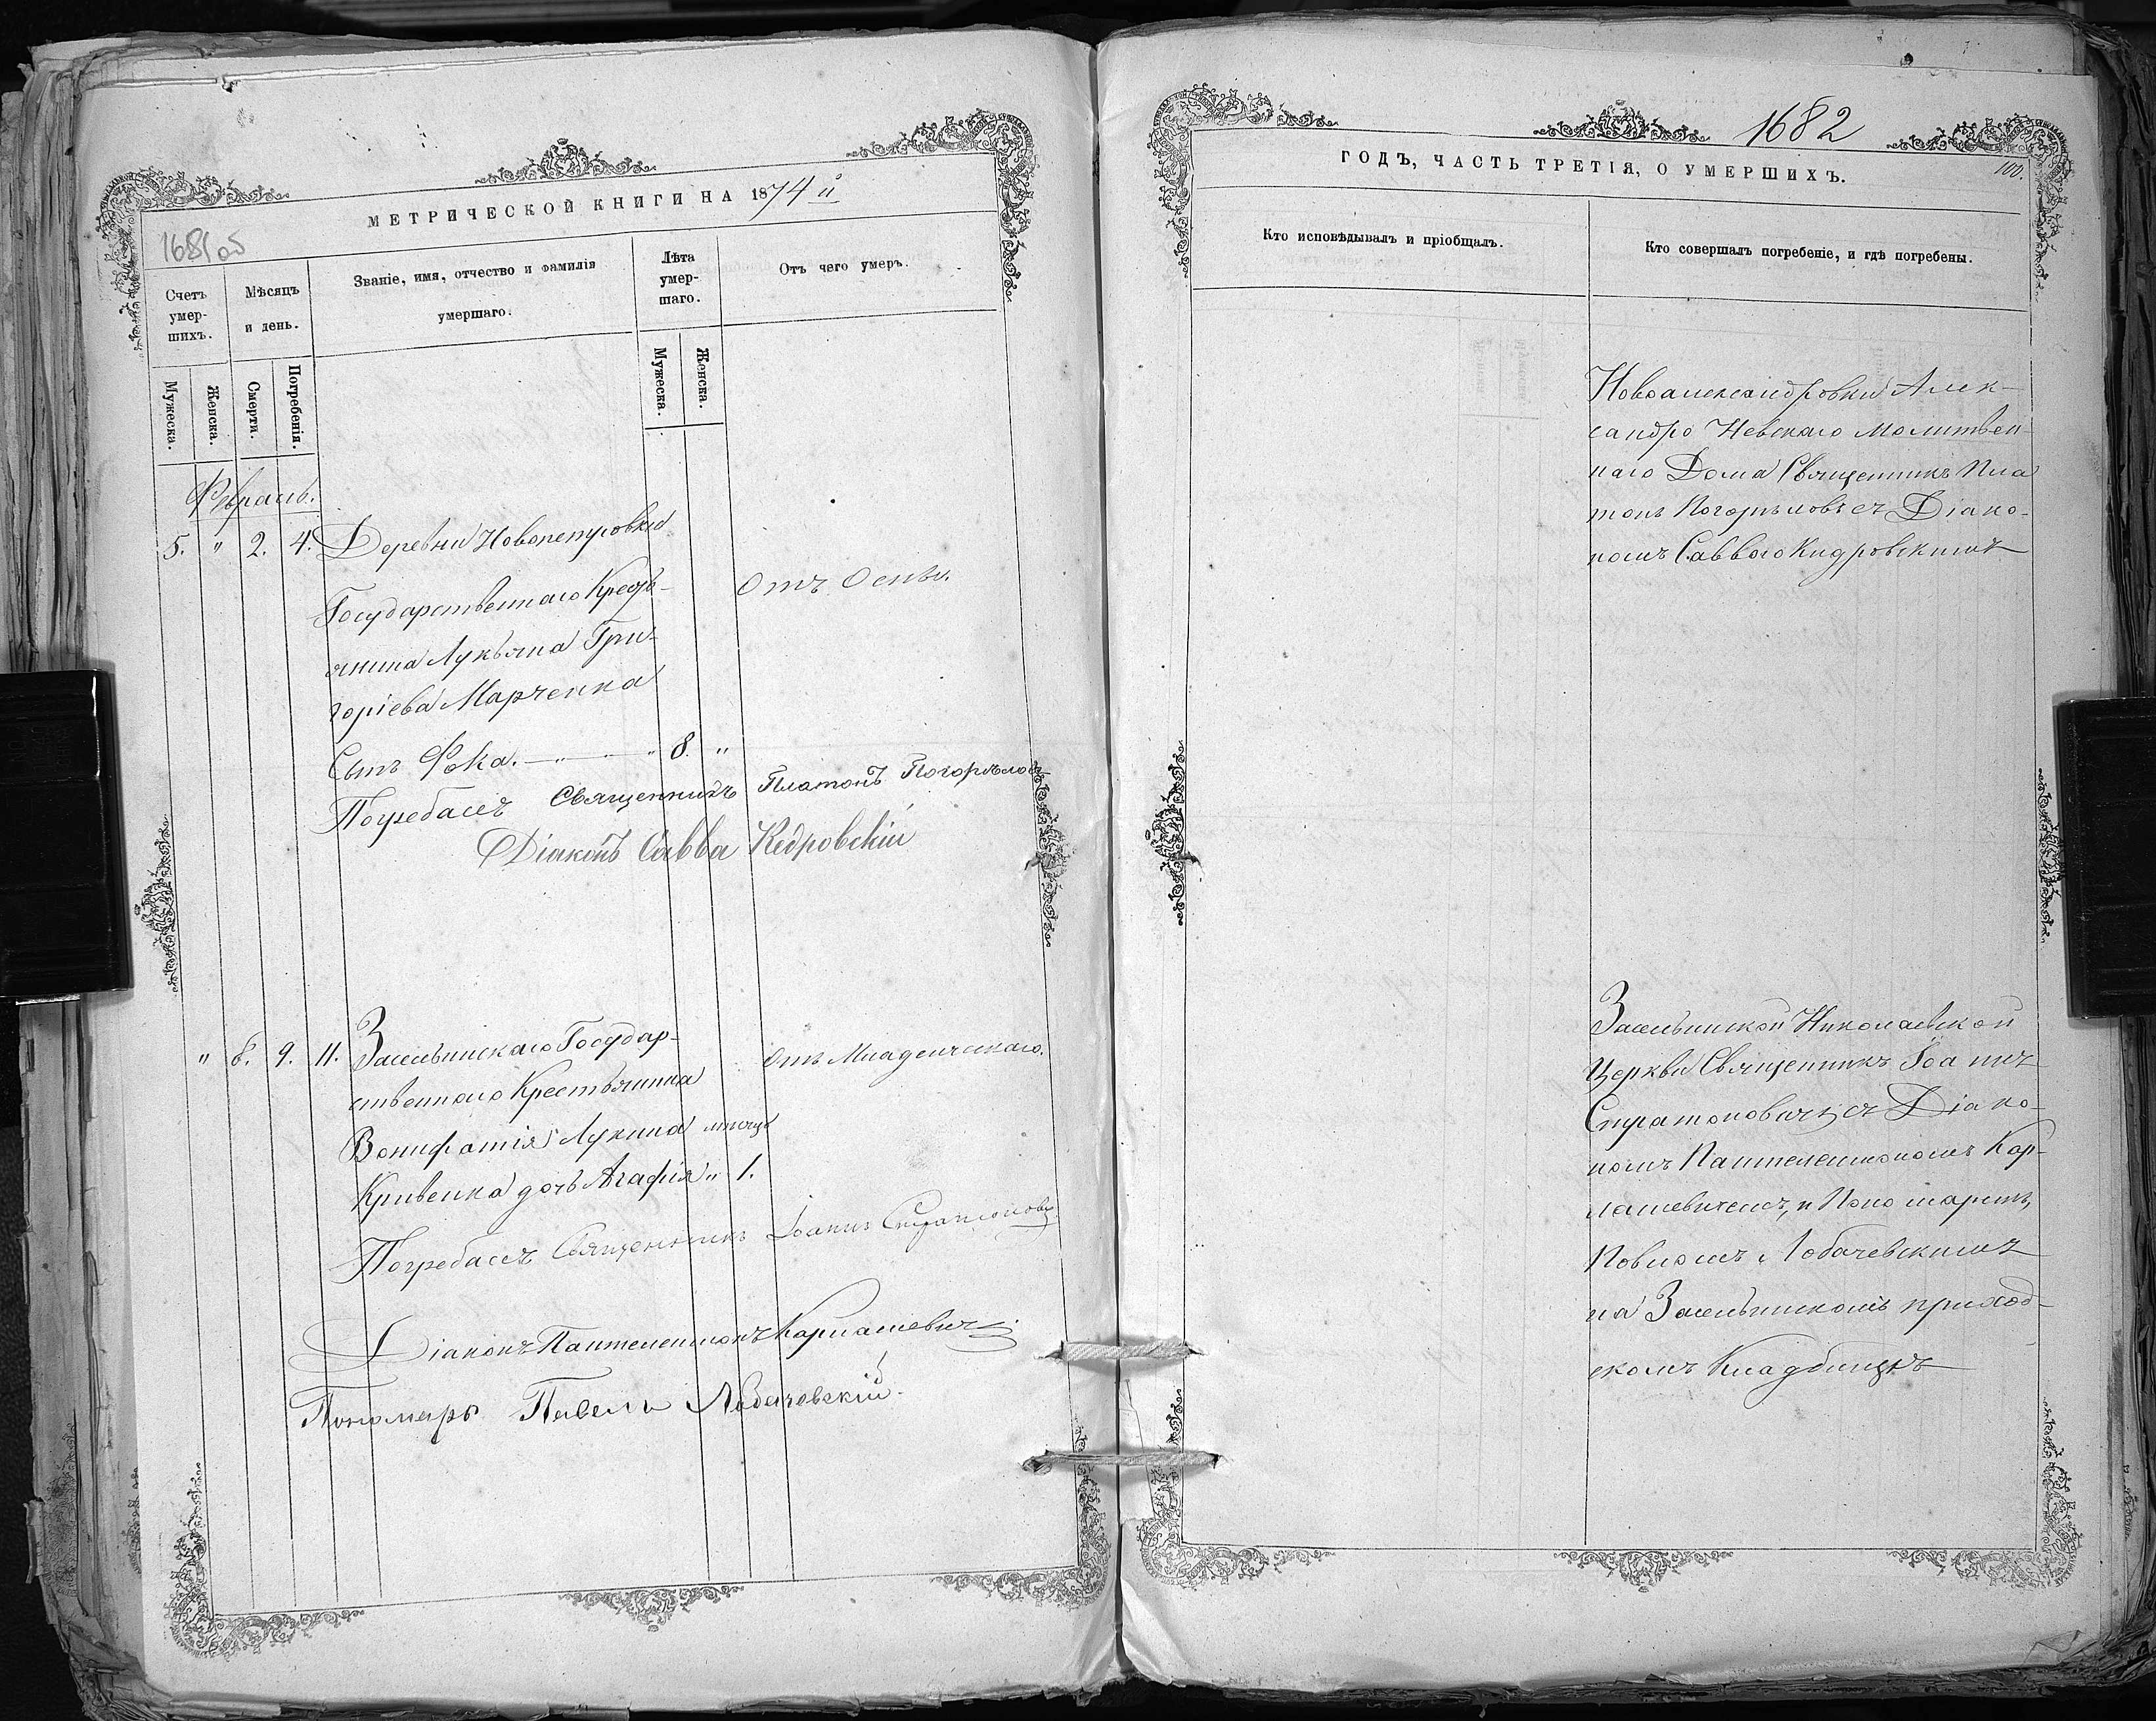 МЕТРИЧЕСКОЙ КНИГИ НА 1874 й
1681 об
Счетъ умер-шихъ.
Мѣсяцъ и день.
Званіе, имя, отчество и фамилія умершаго.
Лѣта умер-шаго.
Отъ чего умеръ.
Мужеска.
Женска.
Смерти.
Погребенія.
Мужеска.
Женска.
Февраль.
5. " 2. 4. Деревни Новопетровки
Государственнаго Кресть-
Отъ Оспы.
янина Лукьяна Гри-
горіева Марченка
Сынъ Фока. — " — " 8. "
Погребалъ Священникъ Платонъ Погорѣловъ
Діаконъ Савва Кедровскій
" 8. 9. 11. Засельскаго Государ-
Отъ Младенческаго.
ственнаго Крестьянина
Вонифатія Лукина мѣсяцъ
Кривенка дочь Агафія " 1.
Погребалъ Священникъ Іоаннъ Стратоновичъ
Діаконъ Пантелеимонъ Карпашевичъ
Пономарь Павелъ Лобачевскій.
1682
100.
ГОДЪ, ЧАСТЬ ТРЕТІЯ, О УМЕРШИХЪ.
Кто исповѣдывалъ и пріобщалъ.
Кто совершалъ погребеніе, и гдѣ погребены.
Новоалександровки Алек-
сандро Невскаго Молитвен-
наго Дома Священникъ Пла
тонъ Погорѣловъ съ Діако-
номъ Саввою Кидровскимъ
Николаевской
Церкви Священникъ Іоаннъ
Стратоновичъ съ Діако-
номъ Пантелеимономъ Кар-
пашевичемъ, и Пономаремъ,
Павломъ Лобачевскимъ
на приход-
скомъ Кладбищѣ